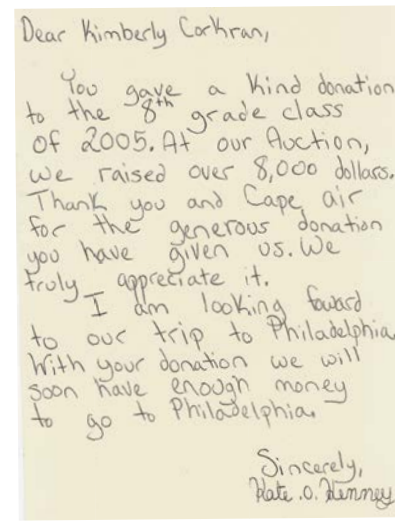 Dear Kimberly Corkran,
You gave a kind donation
to the 8th grade class
of 2005. At our Auction,
we raised over 8,000 dollars.
Thank you and Cape air
for the generous donation
you have given us. We
truly appreciate it.
I am looking foward
to our trip to Philadelphia
With your donation we will
soon have enough money
to go to Philadelphia.
Sincerely,
Kate .O. Kenney